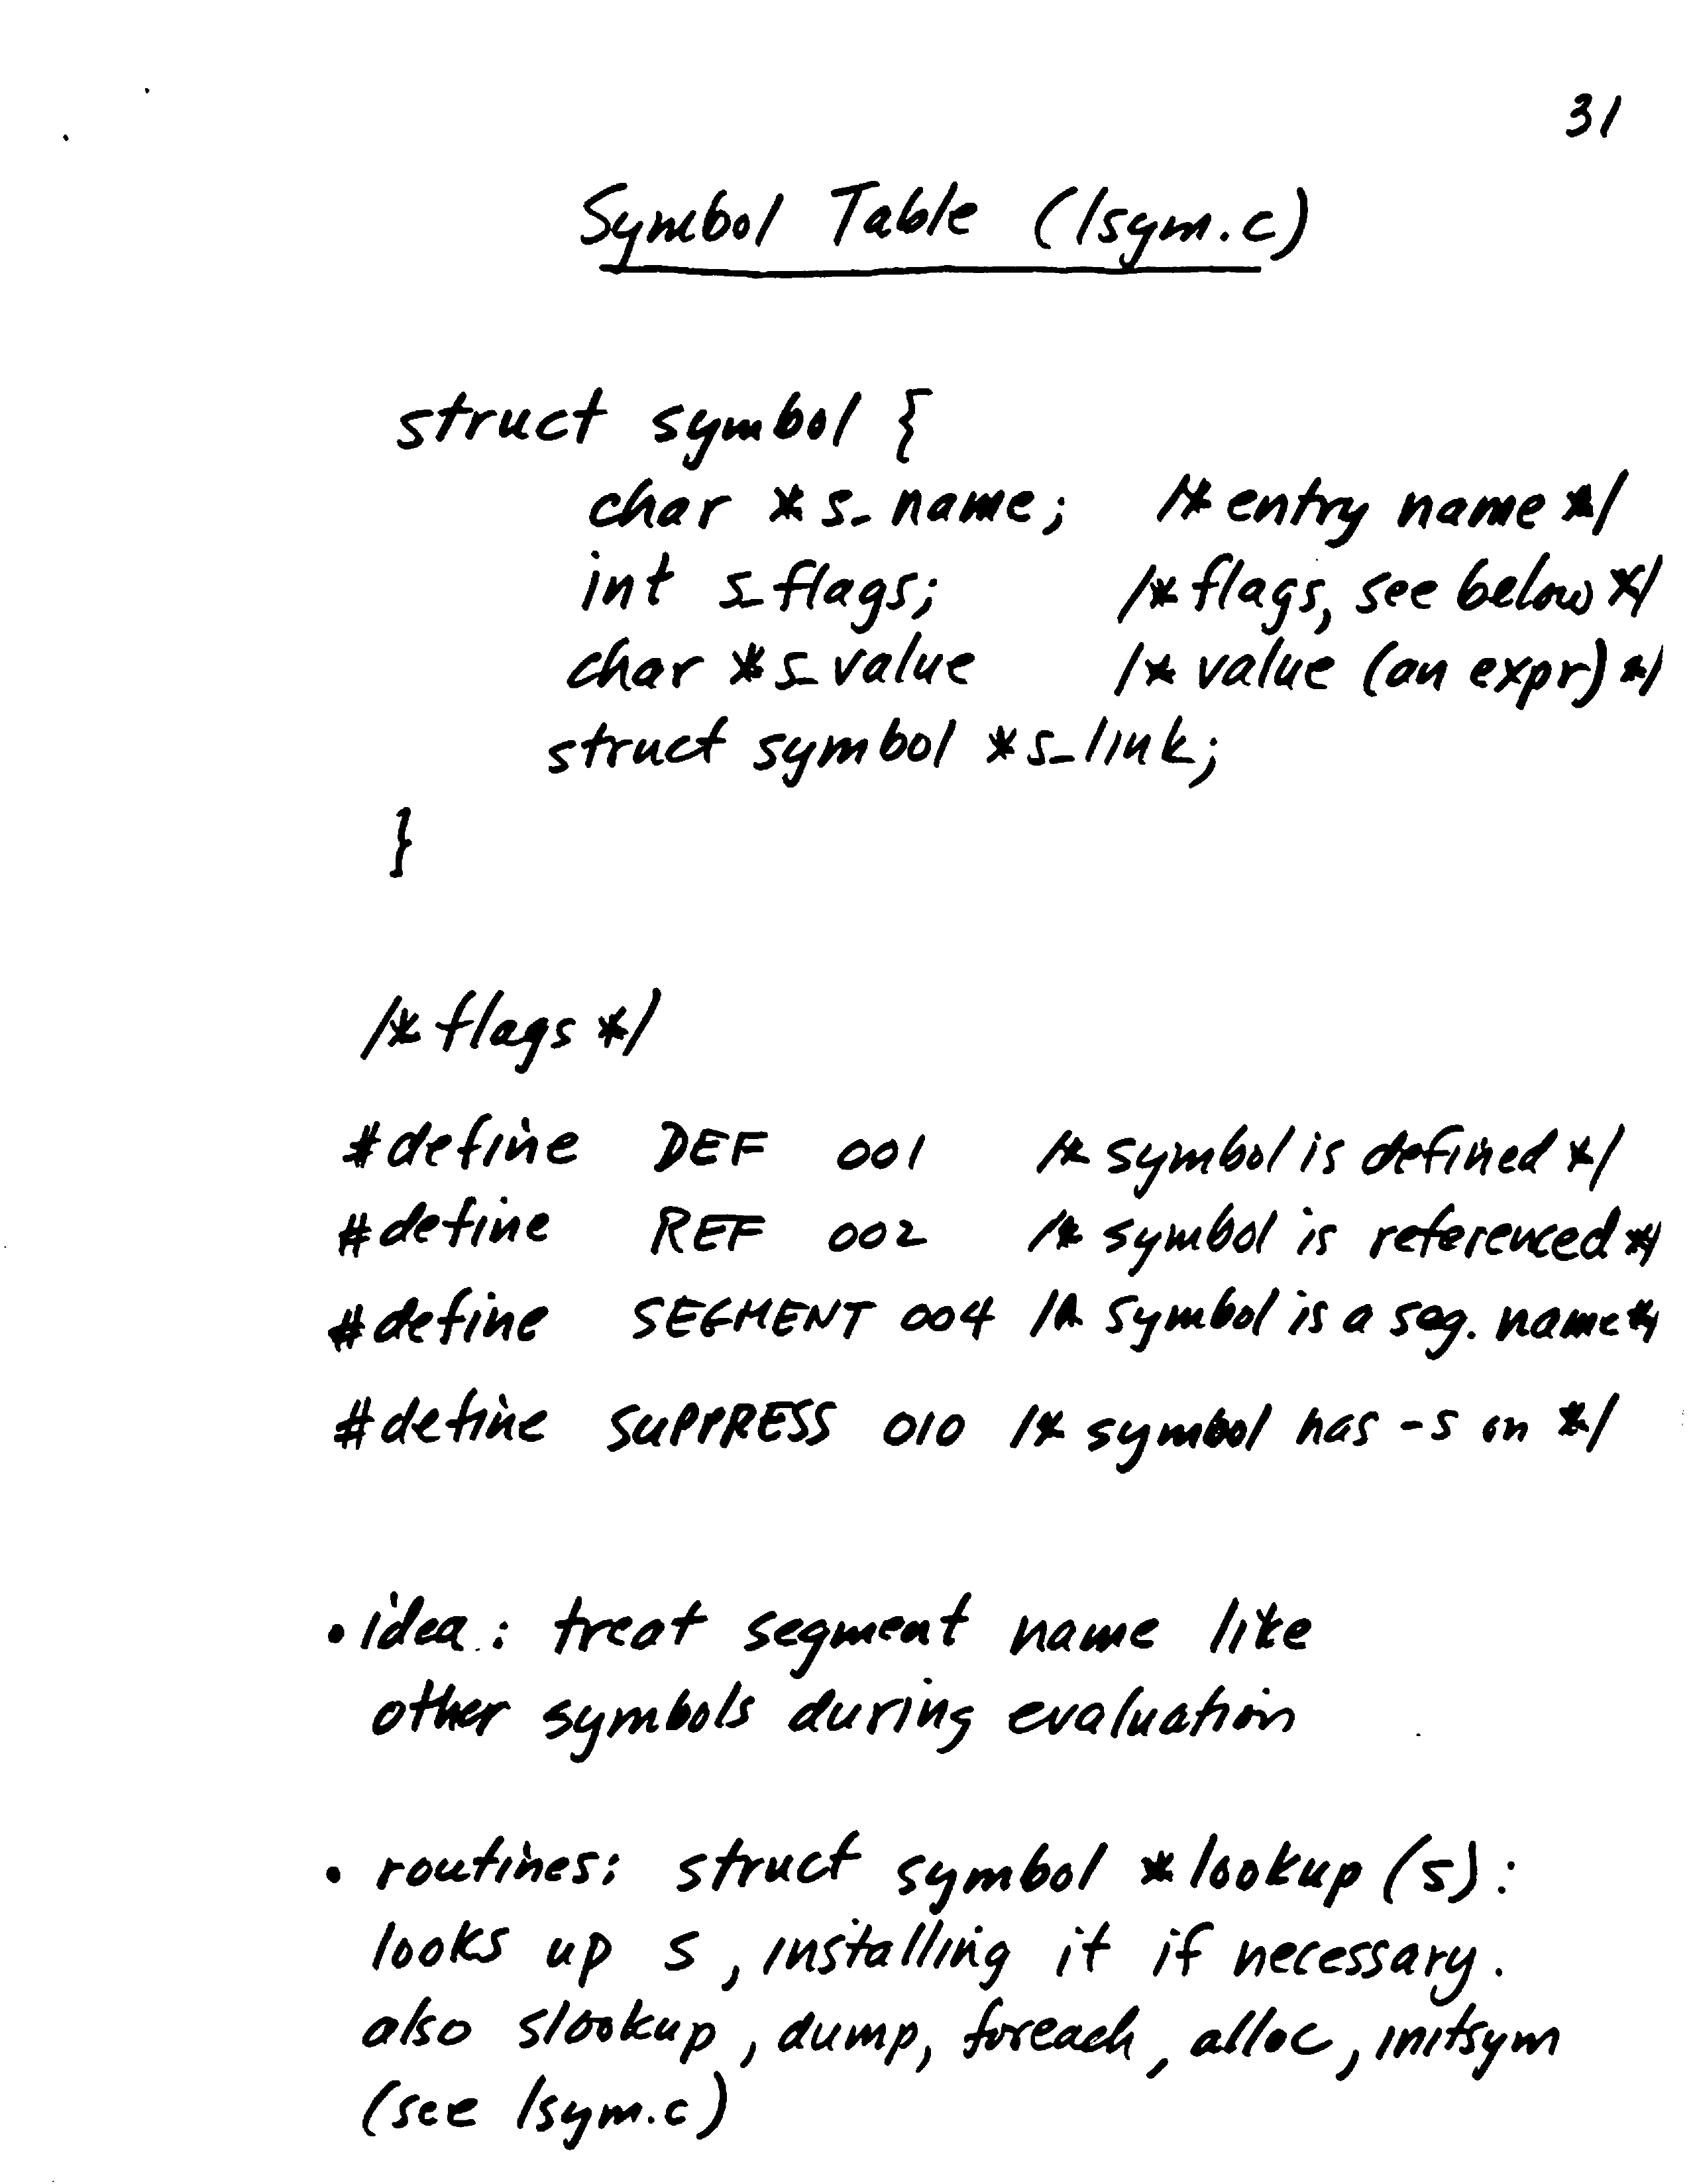 31
Symbol Table (lsym.c)
struct symbol {
char *s_name; /* entry name */
int s_flags; /* flags, see below */
char *s_value /* value (an expr) */
struct symbol *s_link;
}
/* flags */
#define DEF 001 /* symbol is defined */
#define REF 002 /* symbol is referenced */
#define SEGMENT 004 /* symbol is a seg. name */
#define SUPPRESS 010 /* symbol has -s on */
• idea: treat segment name like
other symbols during evaluation
• routines: struct symbol *lookup (s):
looks up s, installing it if necessary.
also slookup, dump, foreach, alloc, initsym
(see lsym.c)